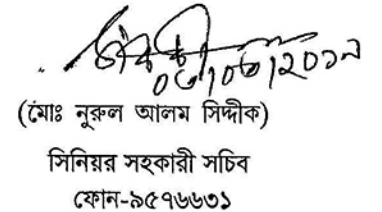 ০৬/০৩/২০১৭
(মোঃ নুরুল আলম সিদ্দীক)
সিনিয়র সহকারী সচিব
ফোন-৯৫৭৬৬৩১